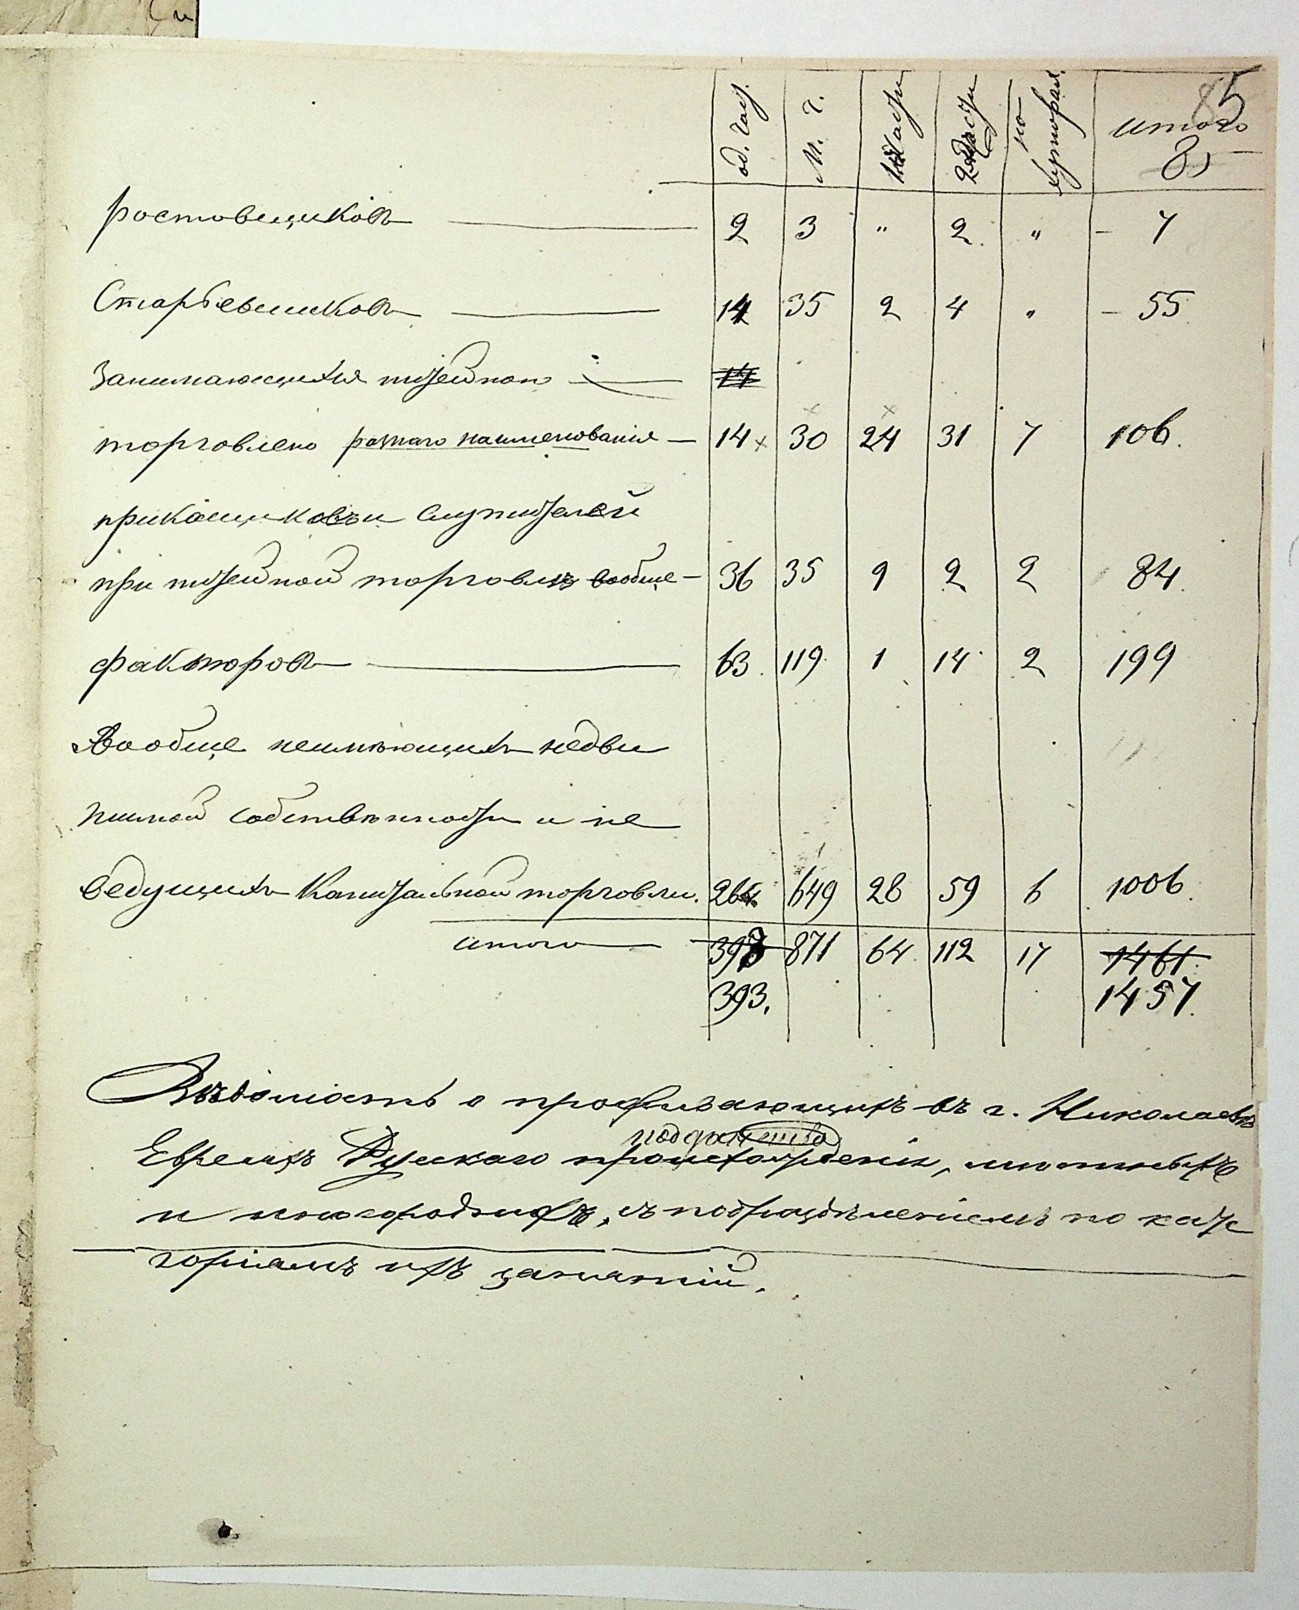 85
од. час. М. ч. 1 части 2 части по хуторам. итого
81
ростовщиковъ 2 3 " 2 " 7
Старьевщиковъ 14 35 2 4 " 55
Занимающихся питейною 14
торговлею разнаго наименованія 14 30 24 31 7 106.
прикащиковъ и служителей
при питейной торговлѣ вообще 36 35 9 2 2 84.
факторовъ 63 119 1 14 2 199
Вообще неимѣющихъ недви
жимой собственности и не
ведущихъ капитальной торговли. 264 649 28 59 6 1006.
итого 393 871 64 112 17 1461.
393. 1457.
Вѣдомость о проживающихъ въ г. Николаевѣ
подданства
Евреяхъ Русскаго происхожденія, мѣстныхъ
и иногородныхъ, съ подраздѣленіемъ по кате
горіямъ ихъ занятій.